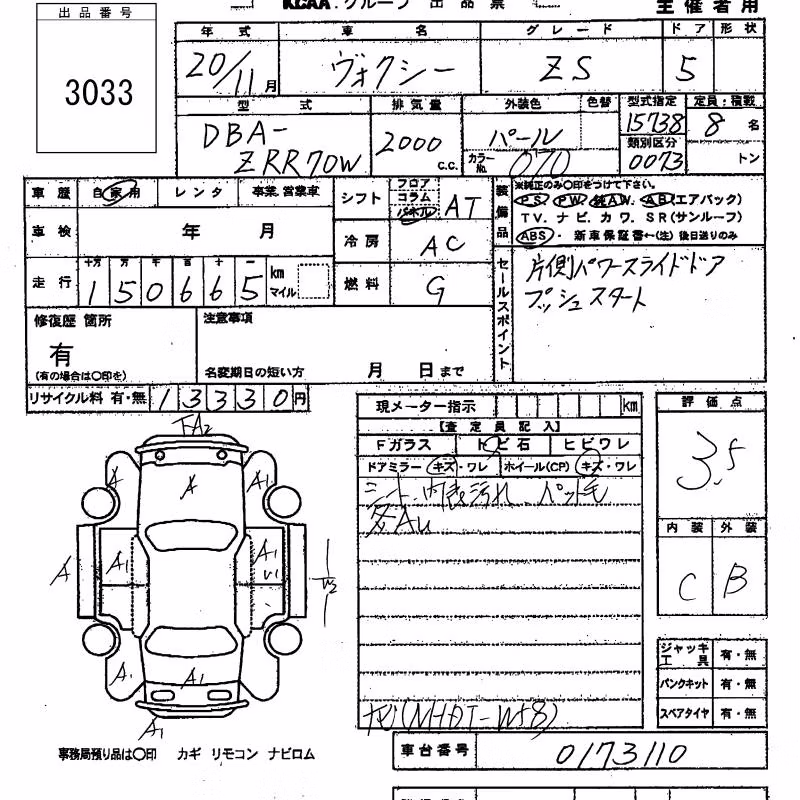 KCAA・グループ 出品票
主催者用
出品番号
3033
年式 車名 グレード ドア 形状
20/11月 ヴォクシー ZS 5
型式 排気量 外装色 色替 型式指定 定員・積載
DBA-ZRR70W 2000 C.C. パール カラーNo. 070 15738 8名
類別区分 0073 トン
車歴 自家用 レンタ 事業.営業車
シフト フロア コラム パネル AT
車検 年 月
冷房 AC
走行 十万 万 千 百 十 一
150665 km マイル
燃料 G
装備品 ※純正のみ○印をつけて下さい。
PS PW 純AW. AB(エアバック)
TV. ナビ. カワ. SR(サンルーフ)
ABS・ 新車保証書←(注)後日送りのみ
セールスポイント
片側パワースライドドア
プッシュスタート
修復歴 箇所
有
(有の場合は○印を)
注意事項
名変期日の短い方 月 日まで
リサイクル料 有・無 13330円
現メーター指示 km
【査定員記入】
Fガラス トビ石 ヒビワレ
ドアミラー キズ・ワレ ホイール(CP) キズ・ワレ
シート、内張汚れ、ペット毛
多AU
ナビ(MHDT-W58)
評価点
3.5
内装 外装
C B
ジャッキ工具 有・無
パンクキット 有・無
スペアタイヤ 有・無
車台番号 0173110
FA2
A A A1
A A1 A1 U1 W2
A1 A1
A1
事務局預り品は○印 カギ リモコン ナビロム